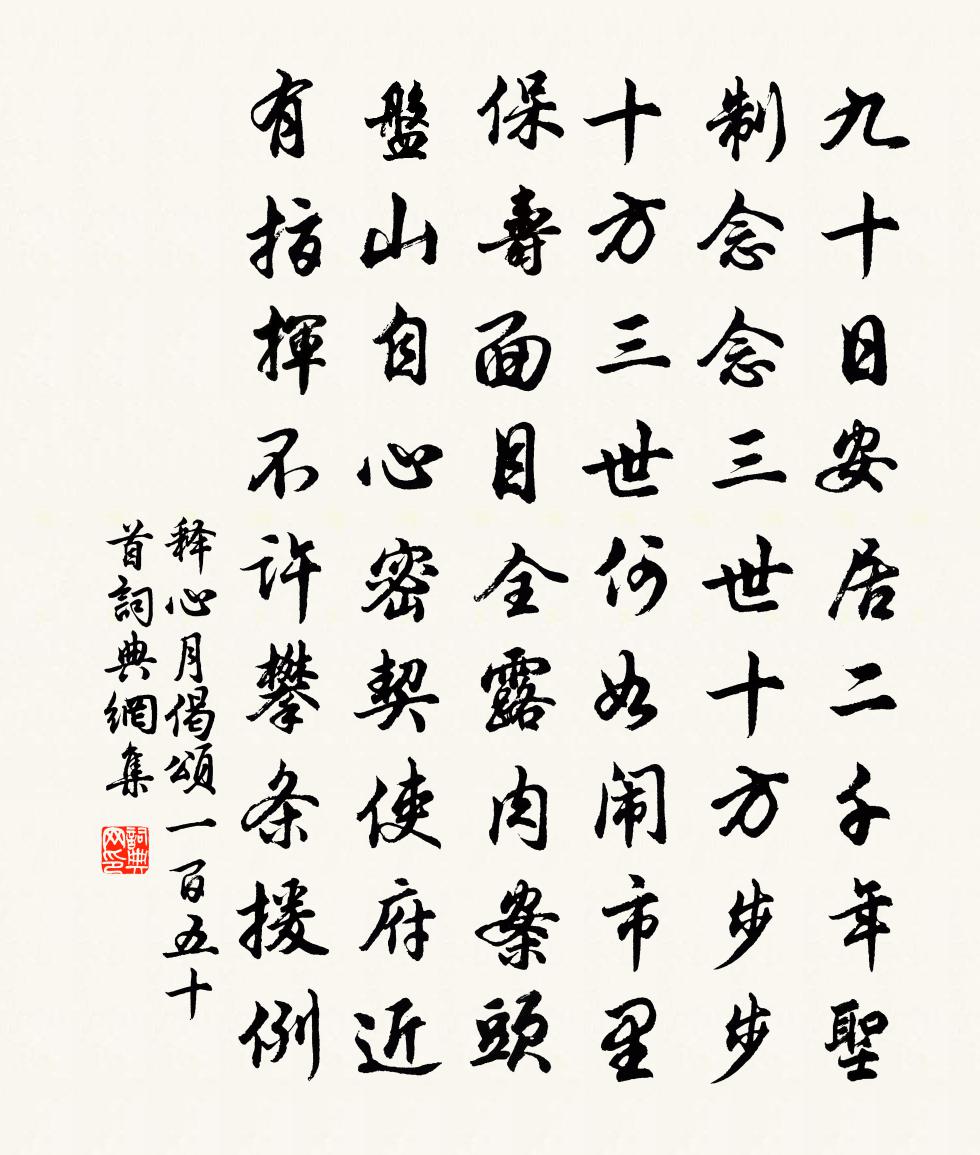 九十日安居二千年聖
制念念三世十方步步
十方三世何如闹市里
保壽面目全露肉案頭
盤山自心密契使府近
有指揮不許攀条援例
释心月偈頌一百五十
首詞典網集
詞典网印